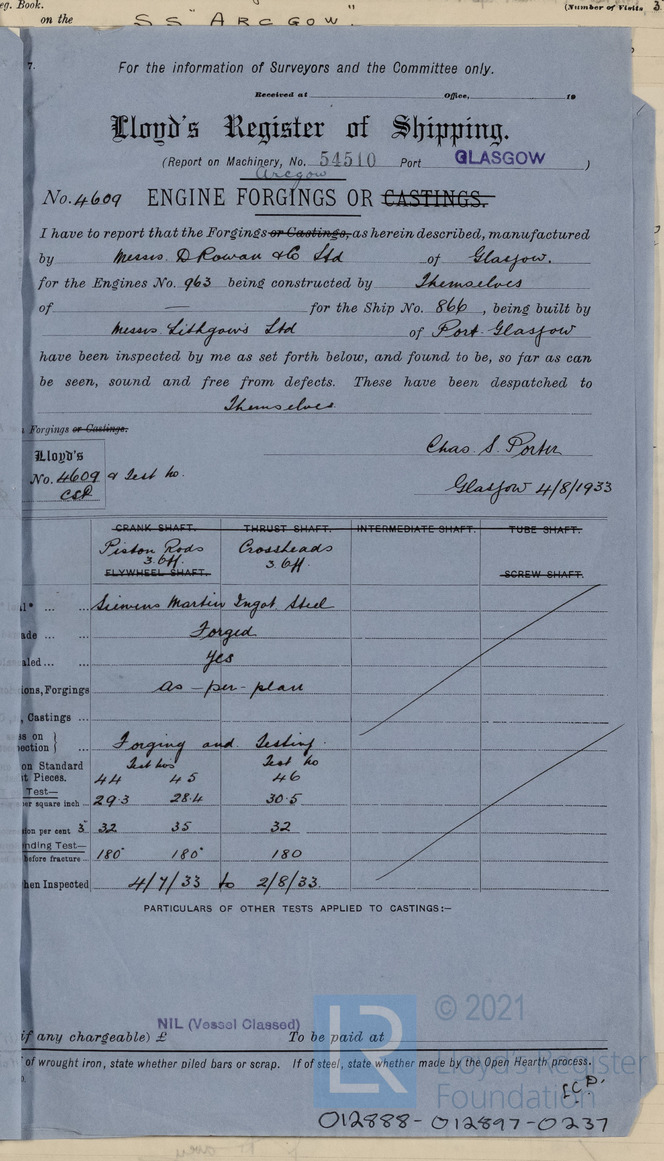 eg. Book.
on the S S "ARCGOW". (Number of Visits 3
7.
For the information of Surveyors and the Committee only.
Received at Office, 19
Lloyd's Register of Shipping.
(Report on Machinery, No. 54510 Port GLASGOW )
Arcgow
No. 4609 ENGINE FORGINGS OR CASTINGS.
I have to report that the Forgings or Castings, as herein described, manufactured
by Messrs. D Rowan & Co Ltd of Glasgow.
for the Engines No. 963 being constructed by Themselves
of — for the Ship No. 866, being built by
Messrs. Lithgows Ltd of Port Glasgow
have been inspected by me as set forth below, and found to be, so far as can
be seen, sound and free from defects. These have been despatched to
Themselves.
Forgings or Castings.
Chas. S. Porter
Lloyd's
No. 4609 & Test No.
CSP
Glasgow 4/8/1933
CRANK SHAFT. THRUST SHAFT. INTERMEDIATE SHAFT. TUBE SHAFT.
Piston Rods Crossheads
3 off. 3 off.
FLYWHEEL SHAFT. SCREW SHAFT.
al* ... ... Siemens Martin Ingot Steel
ade ... ... Forged
aled ... ... Yes
ions, Forgings as - per - plan
, Castings ...
ss on
ection } ... Forging and Testing.
on Standard Test Nos Test No
t Pieces. 44 45 46
Test—
er square inch ... 29.3 28.4 30.5
ion per cent 3" 32 35 32
nding Test—
before fracture ... 180° 180° 180
hen Inspected 4/7/33 to 2/8/33.
PARTICULARS OF OTHER TESTS APPLIED TO CASTINGS:—
NIL (Vessel Classed)
if any chargeable) £ To be paid at
of wrought iron, state whether piled bars or scrap. If of steel, state whether made by the Open Hearth process.
LR
© 2021
Lloyd's Register
Foundation
012888-012897-0237